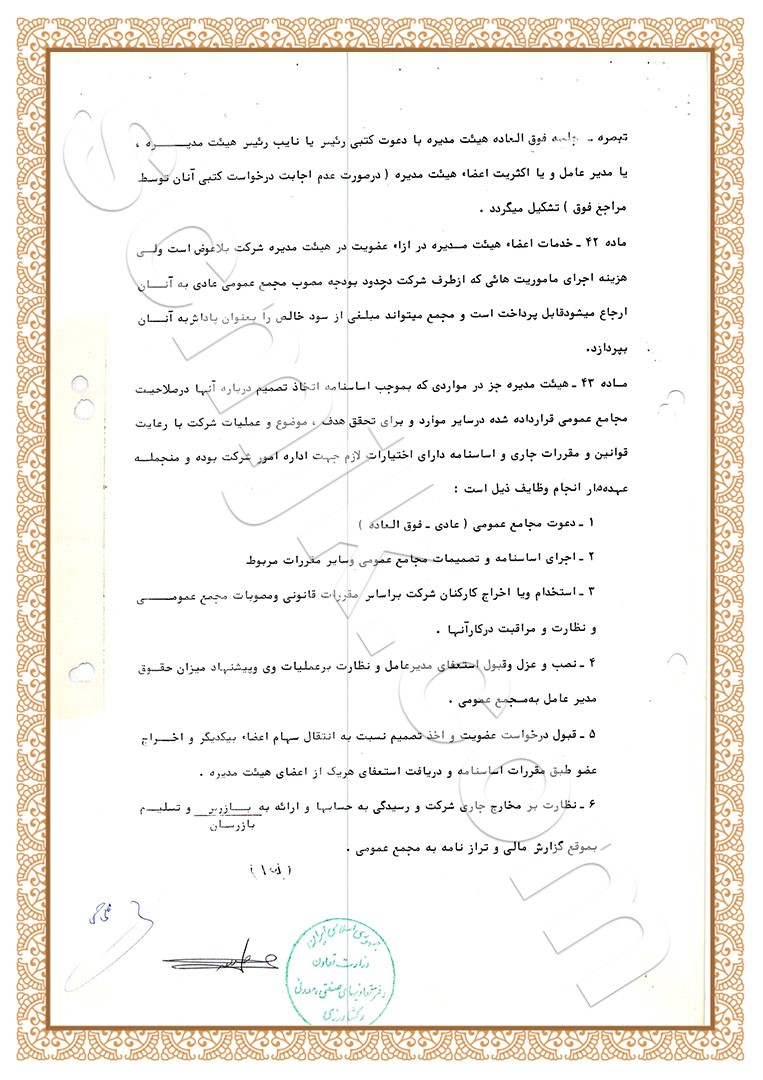 تبصره ـ جلسه فوق العاده هیئت مدیره با دعوت کتبی رئیس یا نایب رئیس هیئت مدیـــــره ،
یا مدیر عامل و یا اکثریت اعضاء هیئت مدیره ( درصورت عدم اجابت درخواست کتبی آنان توسط
مراجع فوق ) تشکیل میگردد .
ماده ۴۲ ـ خدمات اعضاء هیئت مـدیره در ازاء عضویت در هیئت مدیره شرکت بلاعوض است ولـی
هزینه اجرای ماموریت هائی که ازطرف شرکت درحدود بودجه مصوب مجمع عمومی عادی به آنـــان
ارجاع میشودقابل پرداخت است و مجمع میتواند مبلغی از سود خالص را بعنوان پاداش به آنـــان
بپردازد.
مـاده ۴۳ ـ هیئت مدیره جز در مواردی که بموجب اساسنامه اتخاذ تصمیم درباره آنها درصلاحیت
مجامع عمومی قرارداده شده درسایر موارد و برای تحقق هدف ، موضوع و عملیات شرکت با رعایت
قوانین و مقررات جاری و اساسنامه دارای اختیارات لازم جهت اداره امور شرکت بوده و منجملـه
عهده‌دار انجام وظایف ذیل است :
۱ ـ دعوت مجامع عمومی ( عادی ـ فوق العاده )
۲ ـ اجرای اساسنامه و تصمیمات مجامع عمومی وسایر مقررات مربوط
۳ ـ استخدام ویا اخراج کارکنان شرکت براساس مقررات قانونی ومصوبات مجمع عمومــــی
و نظارت و مراقبت درکارآنها .
۴ ـ نصب و عزل وقبول استعفای مدیرعامل و نظارت برعملیات وی وپیشنهاد میزان حقـوق
مدیر عامل به‌مجمع عمومی .
۵ ـ قبول درخواست عضویت و اخذ تصمیم نسبت به انتقال سهام اعضاء بیکدیگر و اخـــراج
عضو طبق مقررات اساسنامه و دریافت استعفای هریک از اعضای هیئت مدیره .
۶ ـ نظارت بر مخارج جاری شرکت و رسیدگی به حسابها و ارائه به بـــازرس و تسلیـم
بازرسان
بموقع گزارش مالی و تراز نامه به مجمع عمومی .
جمهوری اسلامی ایران
وزارت تعاون
دفتر تعاونیهای صنعتی، معدنی
و کشاورزی